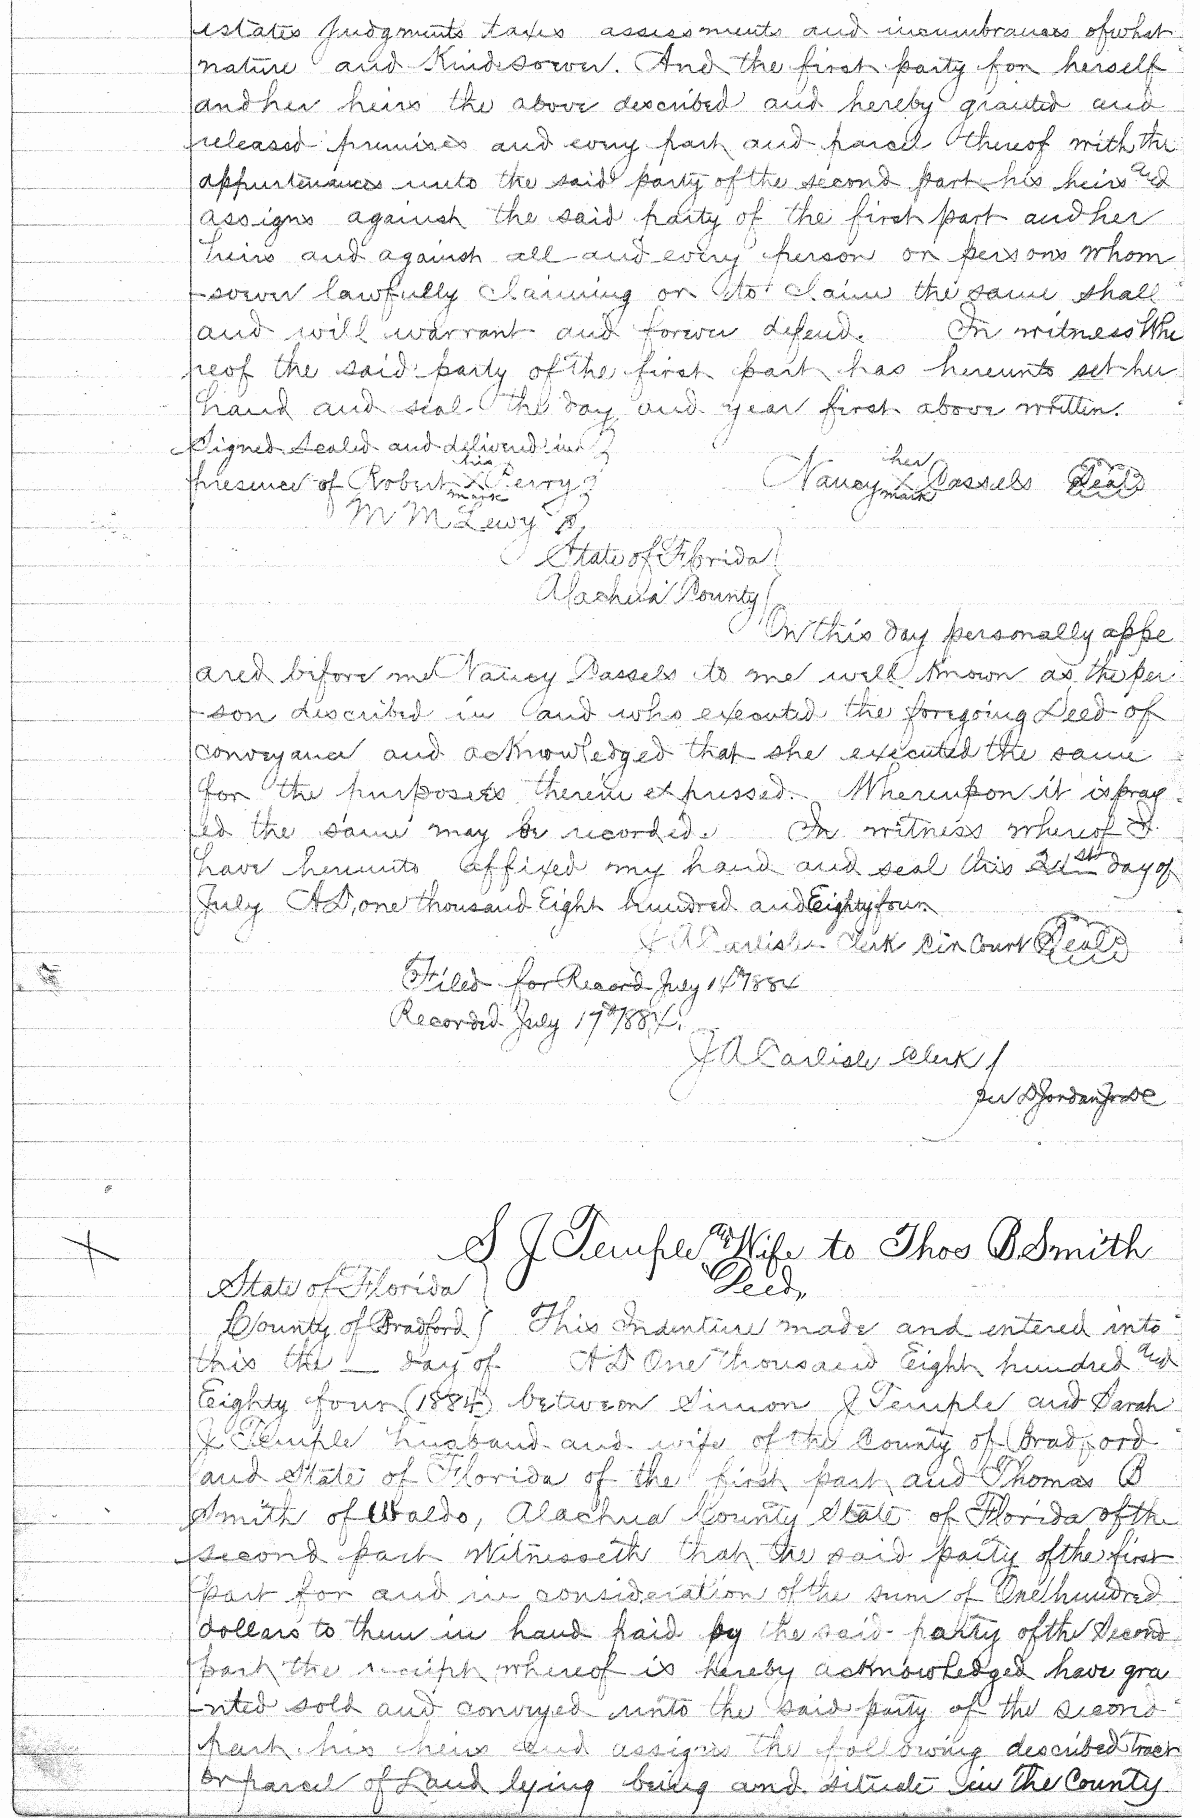 estates Judgments taxes assessments and incumbrances of what
nature and Kind soever. And the first party for herself
and her heirs the above described and hereby granted and
released premises and every part and parcel thereof with the
appurtenances unto the said party of the second part his heirs and
assigns against the said party of the first part and her
heirs and against all and every person or persons whom
-soever lawfully claiming or to claim the same shall
and will warrant and forever defend. In witness Whe
reof the said party of the first part has hereunto set her
hand and seal the day and year first above written.
Signed Sealed and delivered in
presence of Robert his X mark Perry
Nancy her X mark Cassels Seal
M M Lewy
State of Florida
Alachua County
On this day personally appe
ared before me Nancy Cassels to me well Known as the per
-son described in and who executed the foregoing Deed of
conveyance and acknowledged that she executed the same
for the purposes therein expressed. Whereupon it is pray
ed the same may be recorded. In witness whereof I
have hereunto affixed my hand and seal this 21st day of
July AD, one thousand Eight hundred and Eighty four
J A Carlisle Clerk Cir Court Seal
Filed for Record July 14th 1884
Recorded July 17th 1884.
J A Carlisle Clerk
per D Jordan Jr DC
X
S J Temple and Wife to Thos B Smith
Deed,,
State of Florida
County of Bradford This Indenture made and entered into
this the _ day of AD One thousand Eight hundred and
Eighty four (1884) between Simon J Temple and Sarah
J Temple husband and wife of the County of Bradford
and State of Florida of the first part and Thomas B
Smith of Waldo, Alachua County State of Florida of the
second part Witnesseth that the said party of the first
part for and in consideration of the sum of One hundred
dollars to them in hand paid by the said party of the Second
part the receipt whereof is hereby acknowledged have gra
-nted sold and conveyed unto the said party of the second
part his heirs and assigns the following described Tract
or parcel of Land lying being and situate in the County